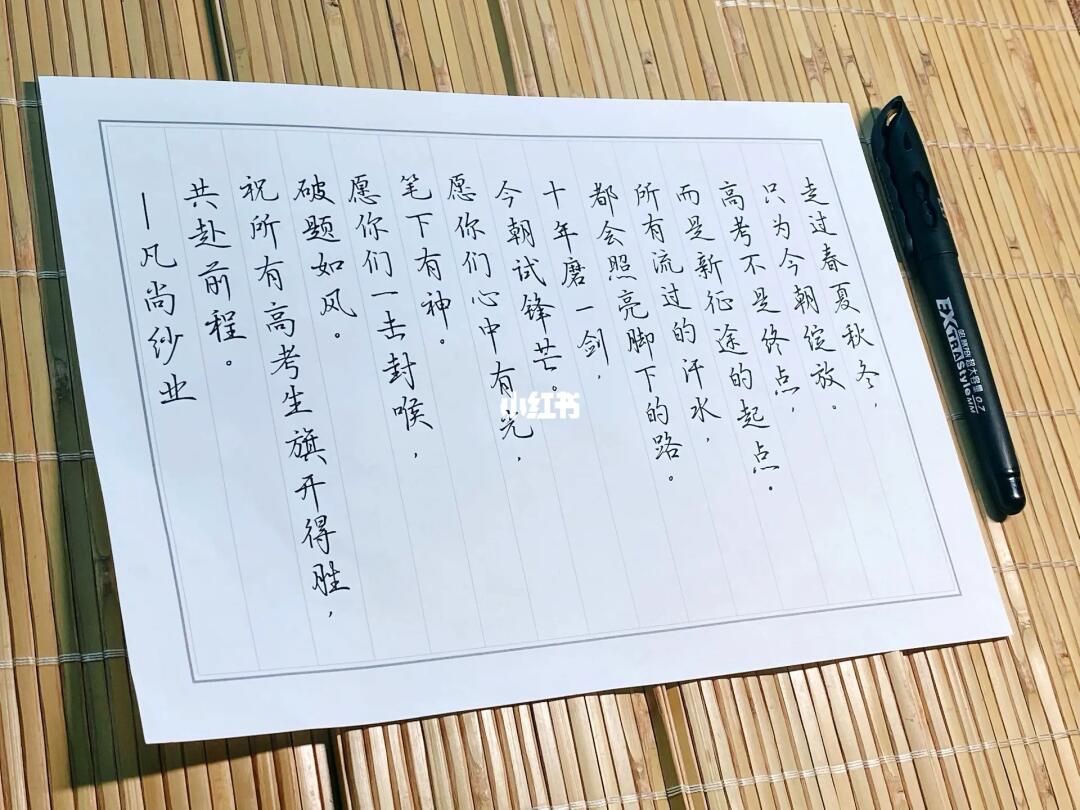 走过春夏秋冬，
只为今朝绽放。
高考不是终点，
而是新征途的起点。
所有流过的汗水，
都会照亮脚下的路。
十年磨一剑，
今朝试锋芒。
愿你们心中有光，
笔下有神。
愿你们一击封喉，
破题如风。
祝所有高考生旗开得胜，
共赴前程。
—凡尚纱业
小红书
EXTRAStyle
0.7
MM